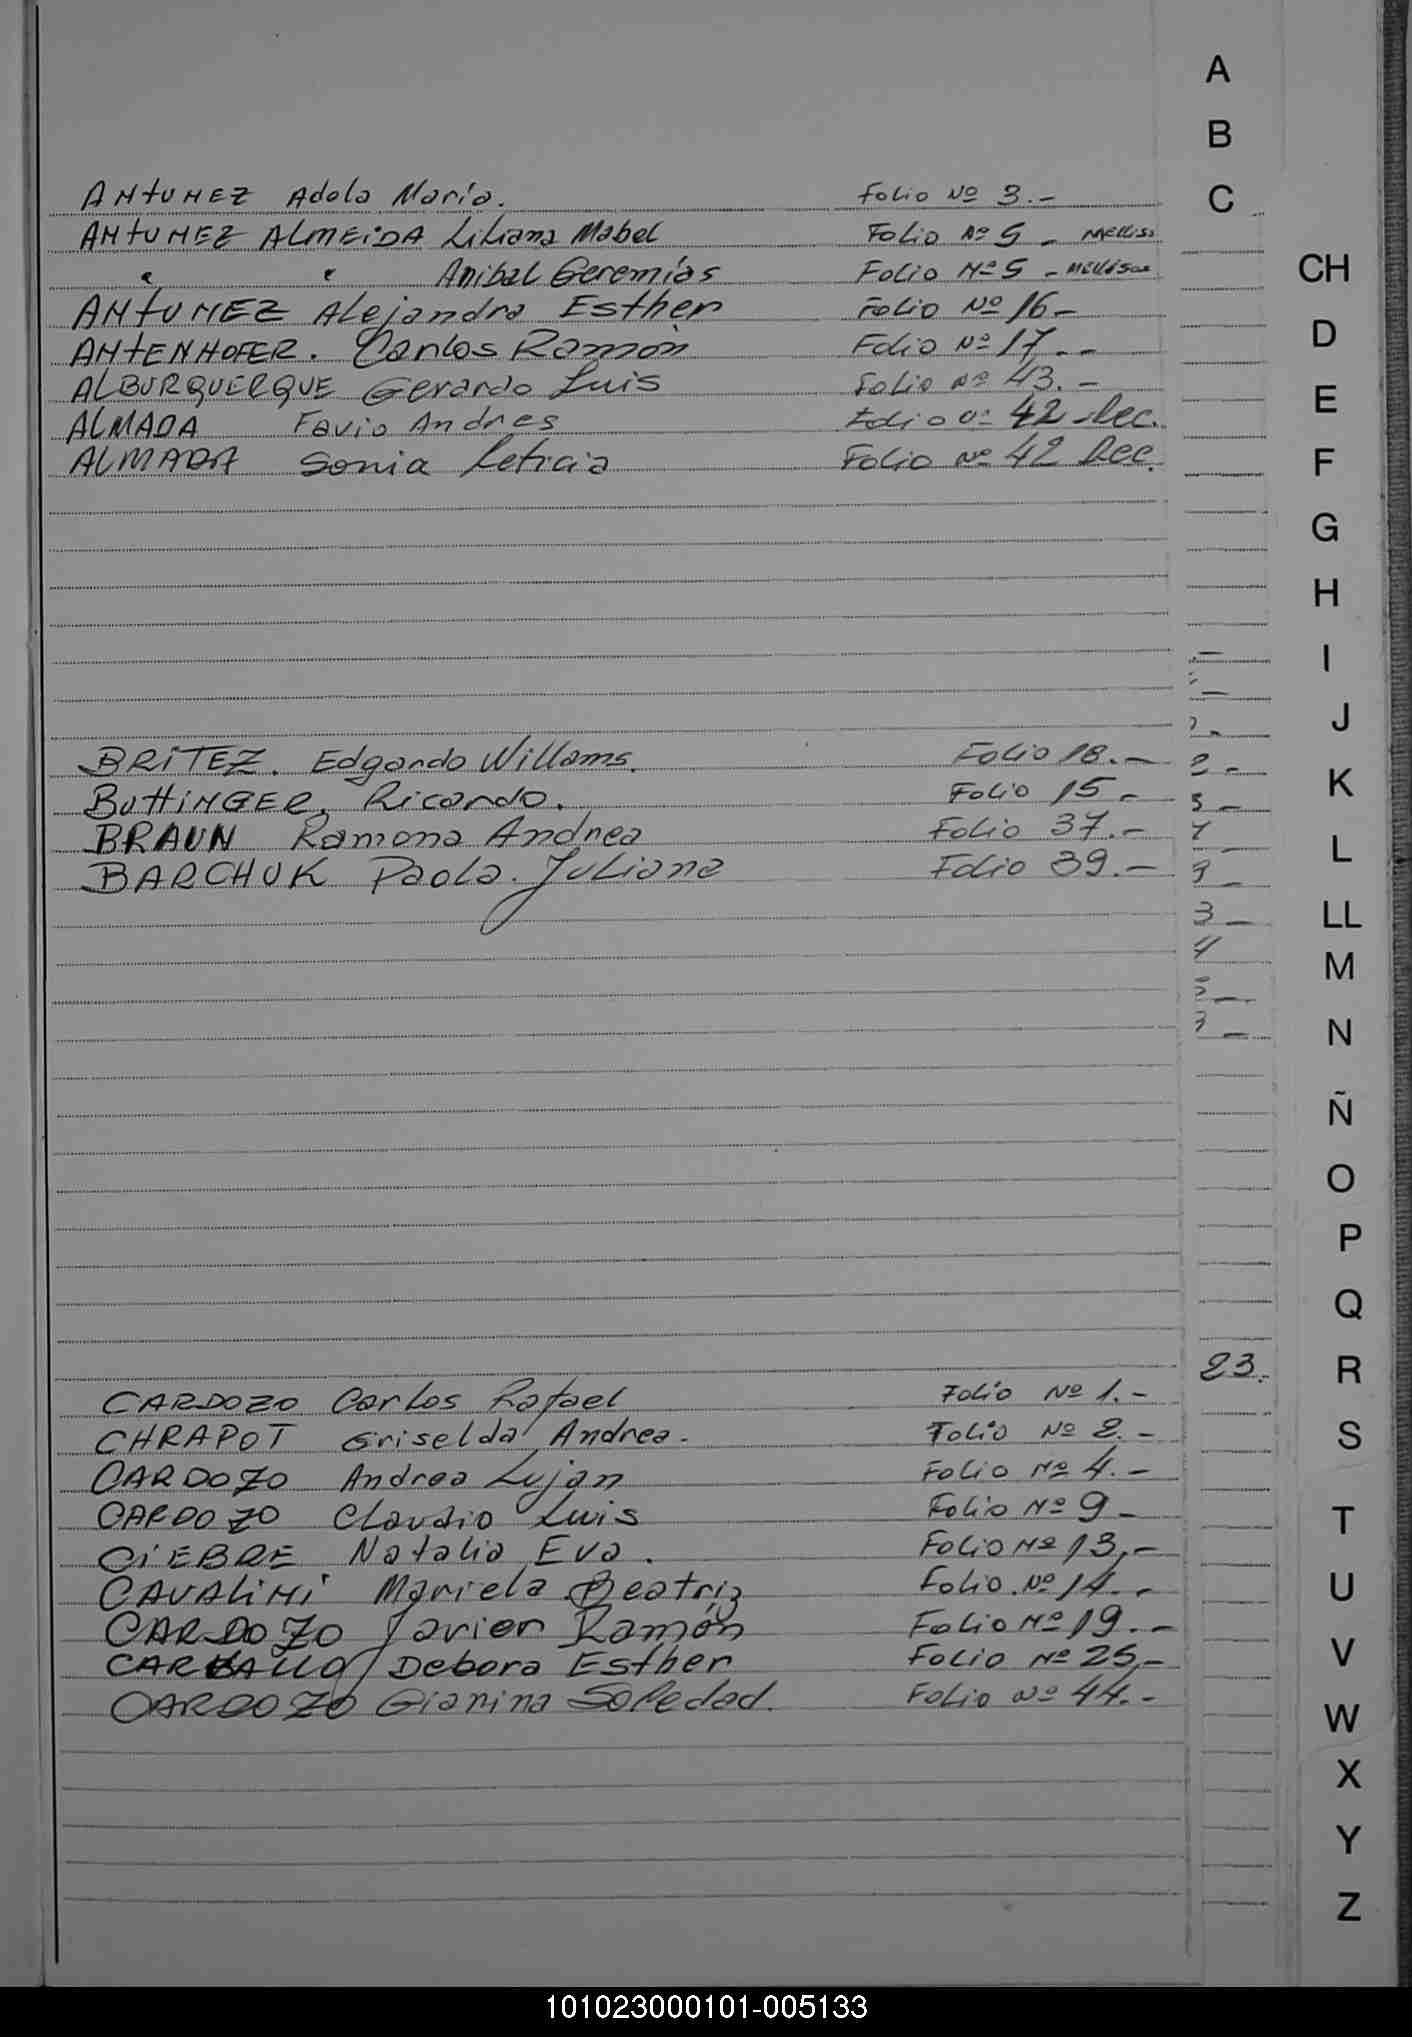 A
B
C
CH
D
E
F
G
H
I
J
K
L
LL
M
N
Ñ
O
P
Q
R
S
T
U
V
W
X
Y
Z
ANTUNEZ Adola María. Folio Nº 3.-
ANTUNEZ ALMEIDA Liliana Mabel Folio Nº 5 - Melliso
" " Anibal Geremías Folio Nº 5 - Mellisos
ANTUNEZ Alejandra Esther Folio Nº 16-
ANTENHOFER. Carlos Ramón Folio Nº 17.--
ALBURQUERQUE Gerardo Luis Folio Nº 43.-
ALMADA Favio Andres Folio Nº 42 Dec.
ALMADA Sonia Leticia Folio Nº 42 Dec.
BRITEZ. Edgardo Willams. Folio 18.-
ButtiNGER, Ricardo. Folio 15.-
BRAUN Ramona Andrea Folio 37.-
BARCHUK Paola Juliana Folio 39.-
23.
CARDOZO Carlos Rafael Folio Nº 1.-
CHRAPOT Griselda Andrea. Folio Nº 2.-
CARDOZO Andrea Lujan Folio Nº 4.-
CARDOZO Claudio Luis Folio Nº 9-
CIEBRE Natalia Eva. Folio Nº 13,-
CAVALINI Mariela Beatriz Folio Nº 14.-
CARDOZO Javier Ramón Folio Nº 19.-
CARBALLO Debora Esther Folio Nº 25,-
CARDOZO Gianina Soledad. Folio Nº 44.-
101023000101-005133